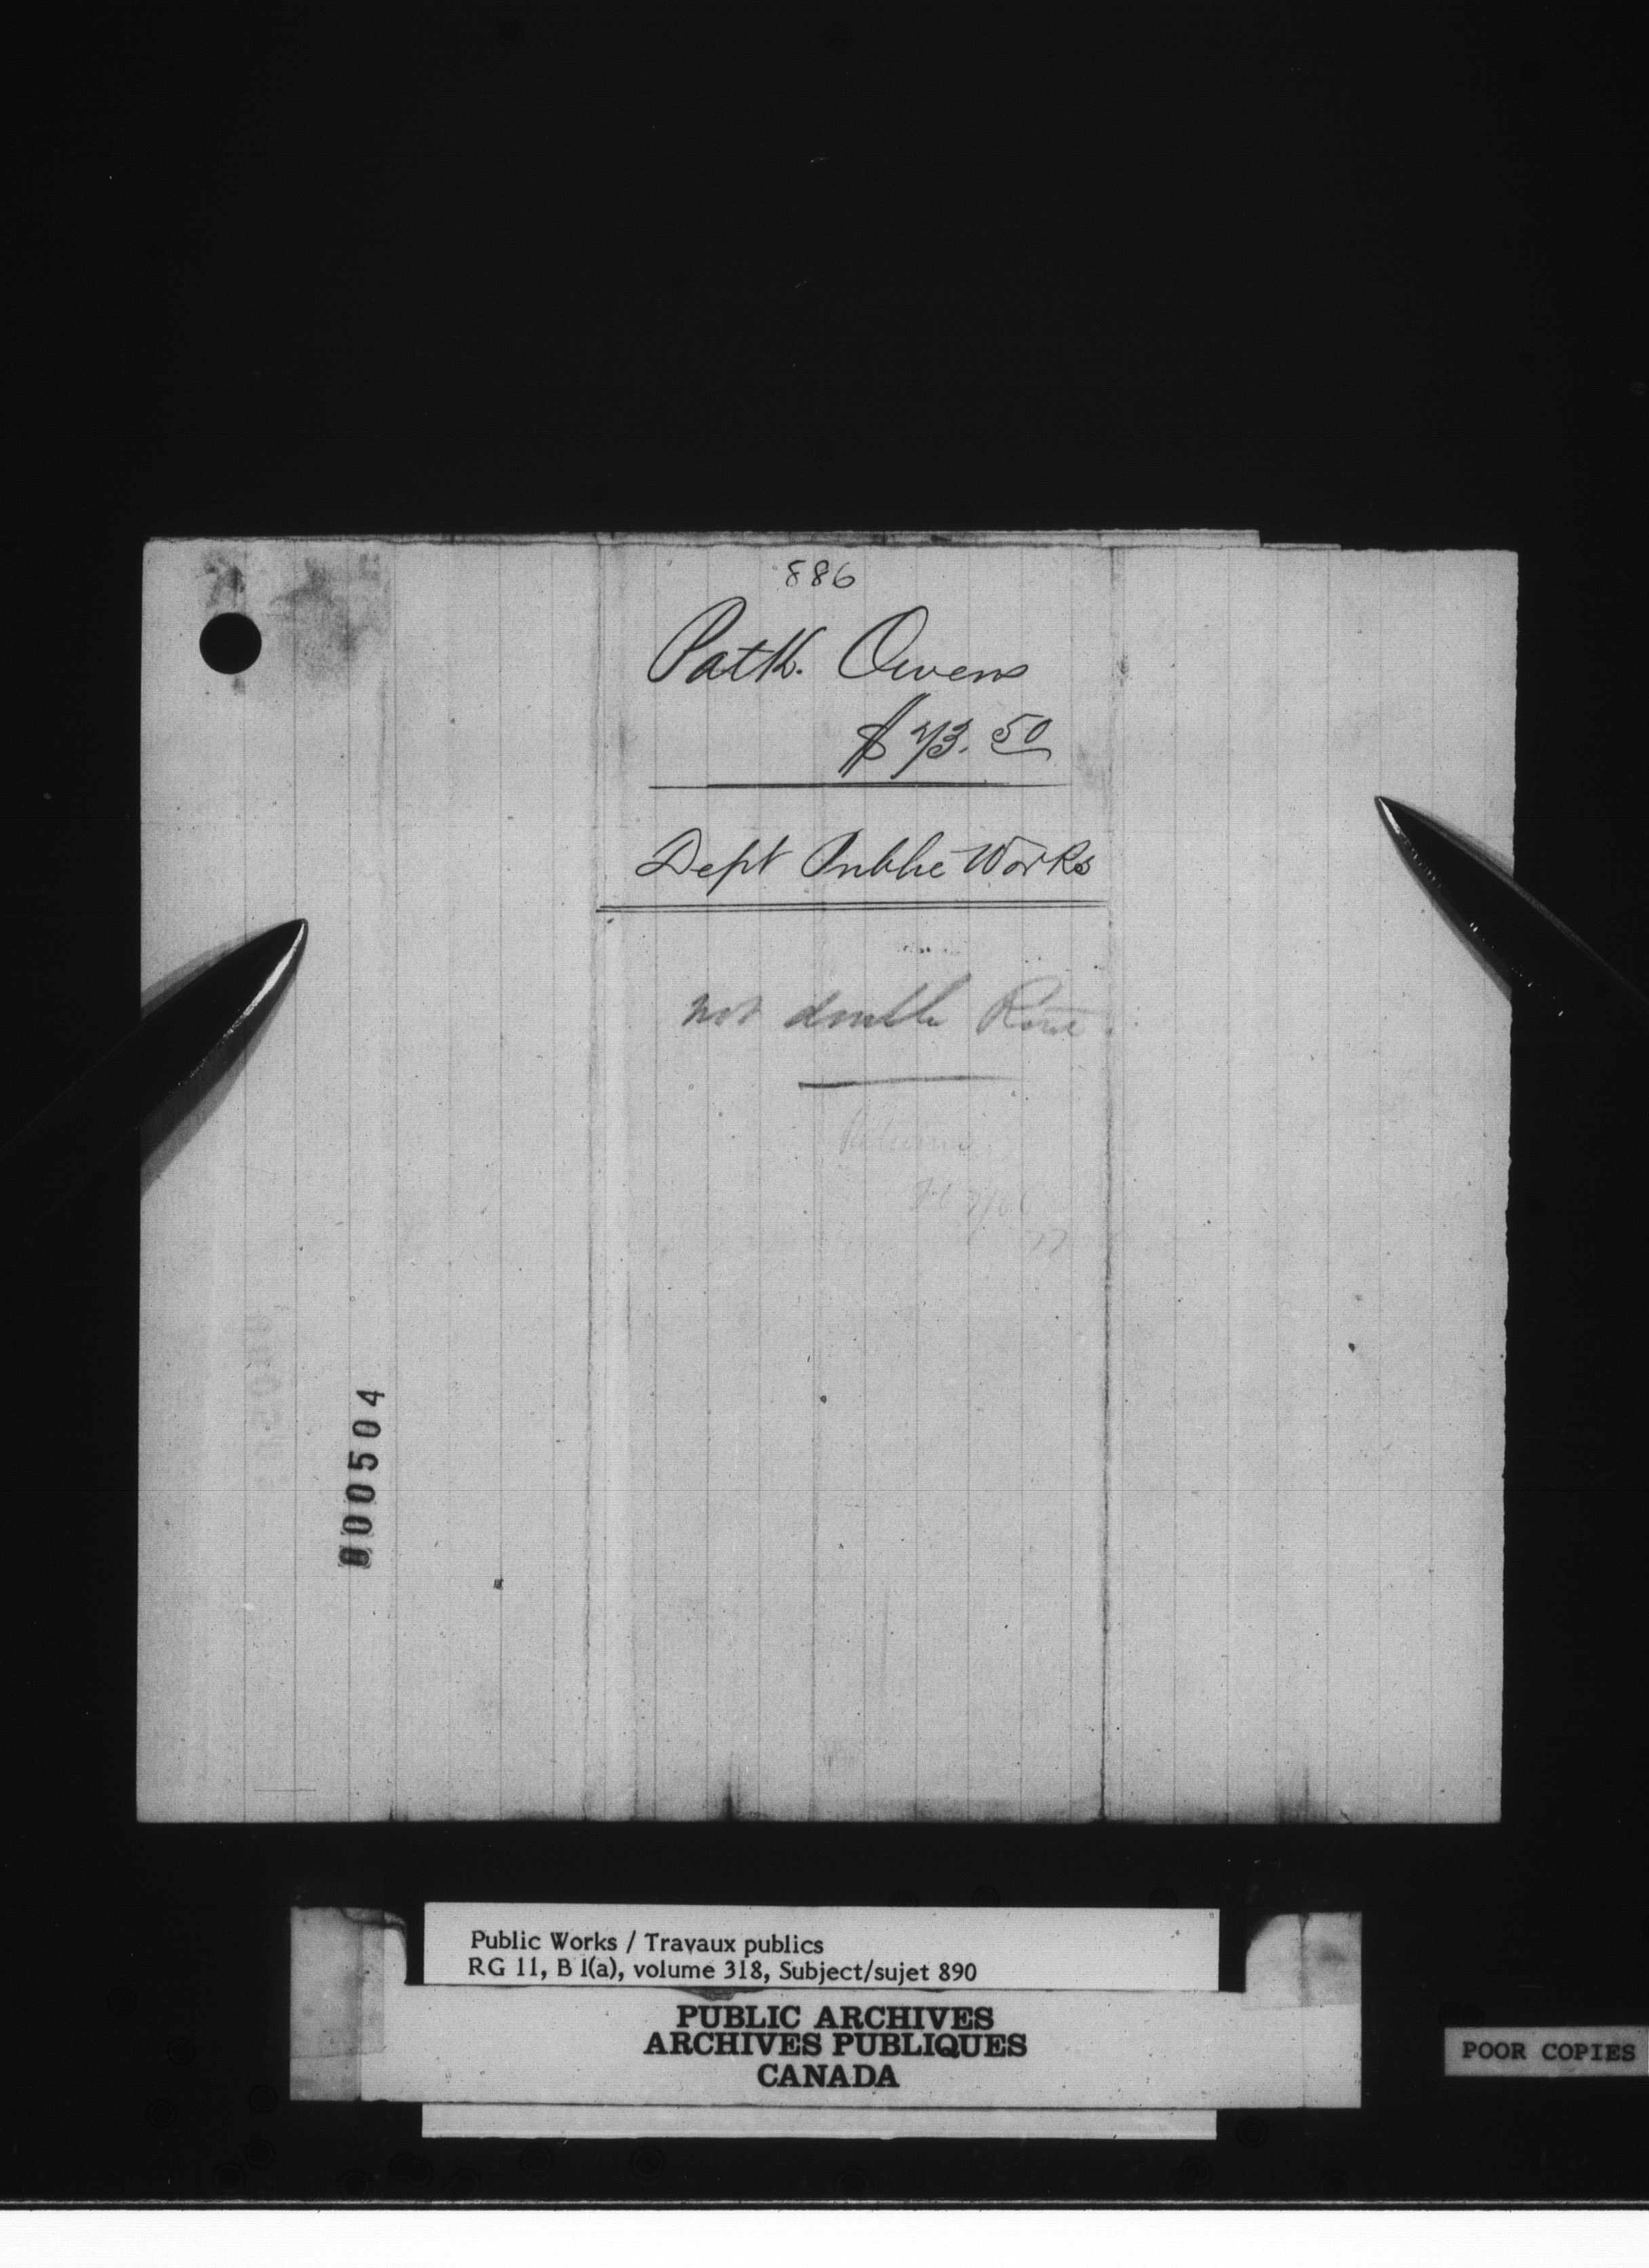 886
Patk. Owens
$73.50
Dept Public Works
not double
000504
Public Works / Travaux publics
RG 11, B 1(a), volume 318, Subject/sujet 890
PUBLIC ARCHIVES
ARCHIVES PUBLIQUES
CANADA
POOR COPIES